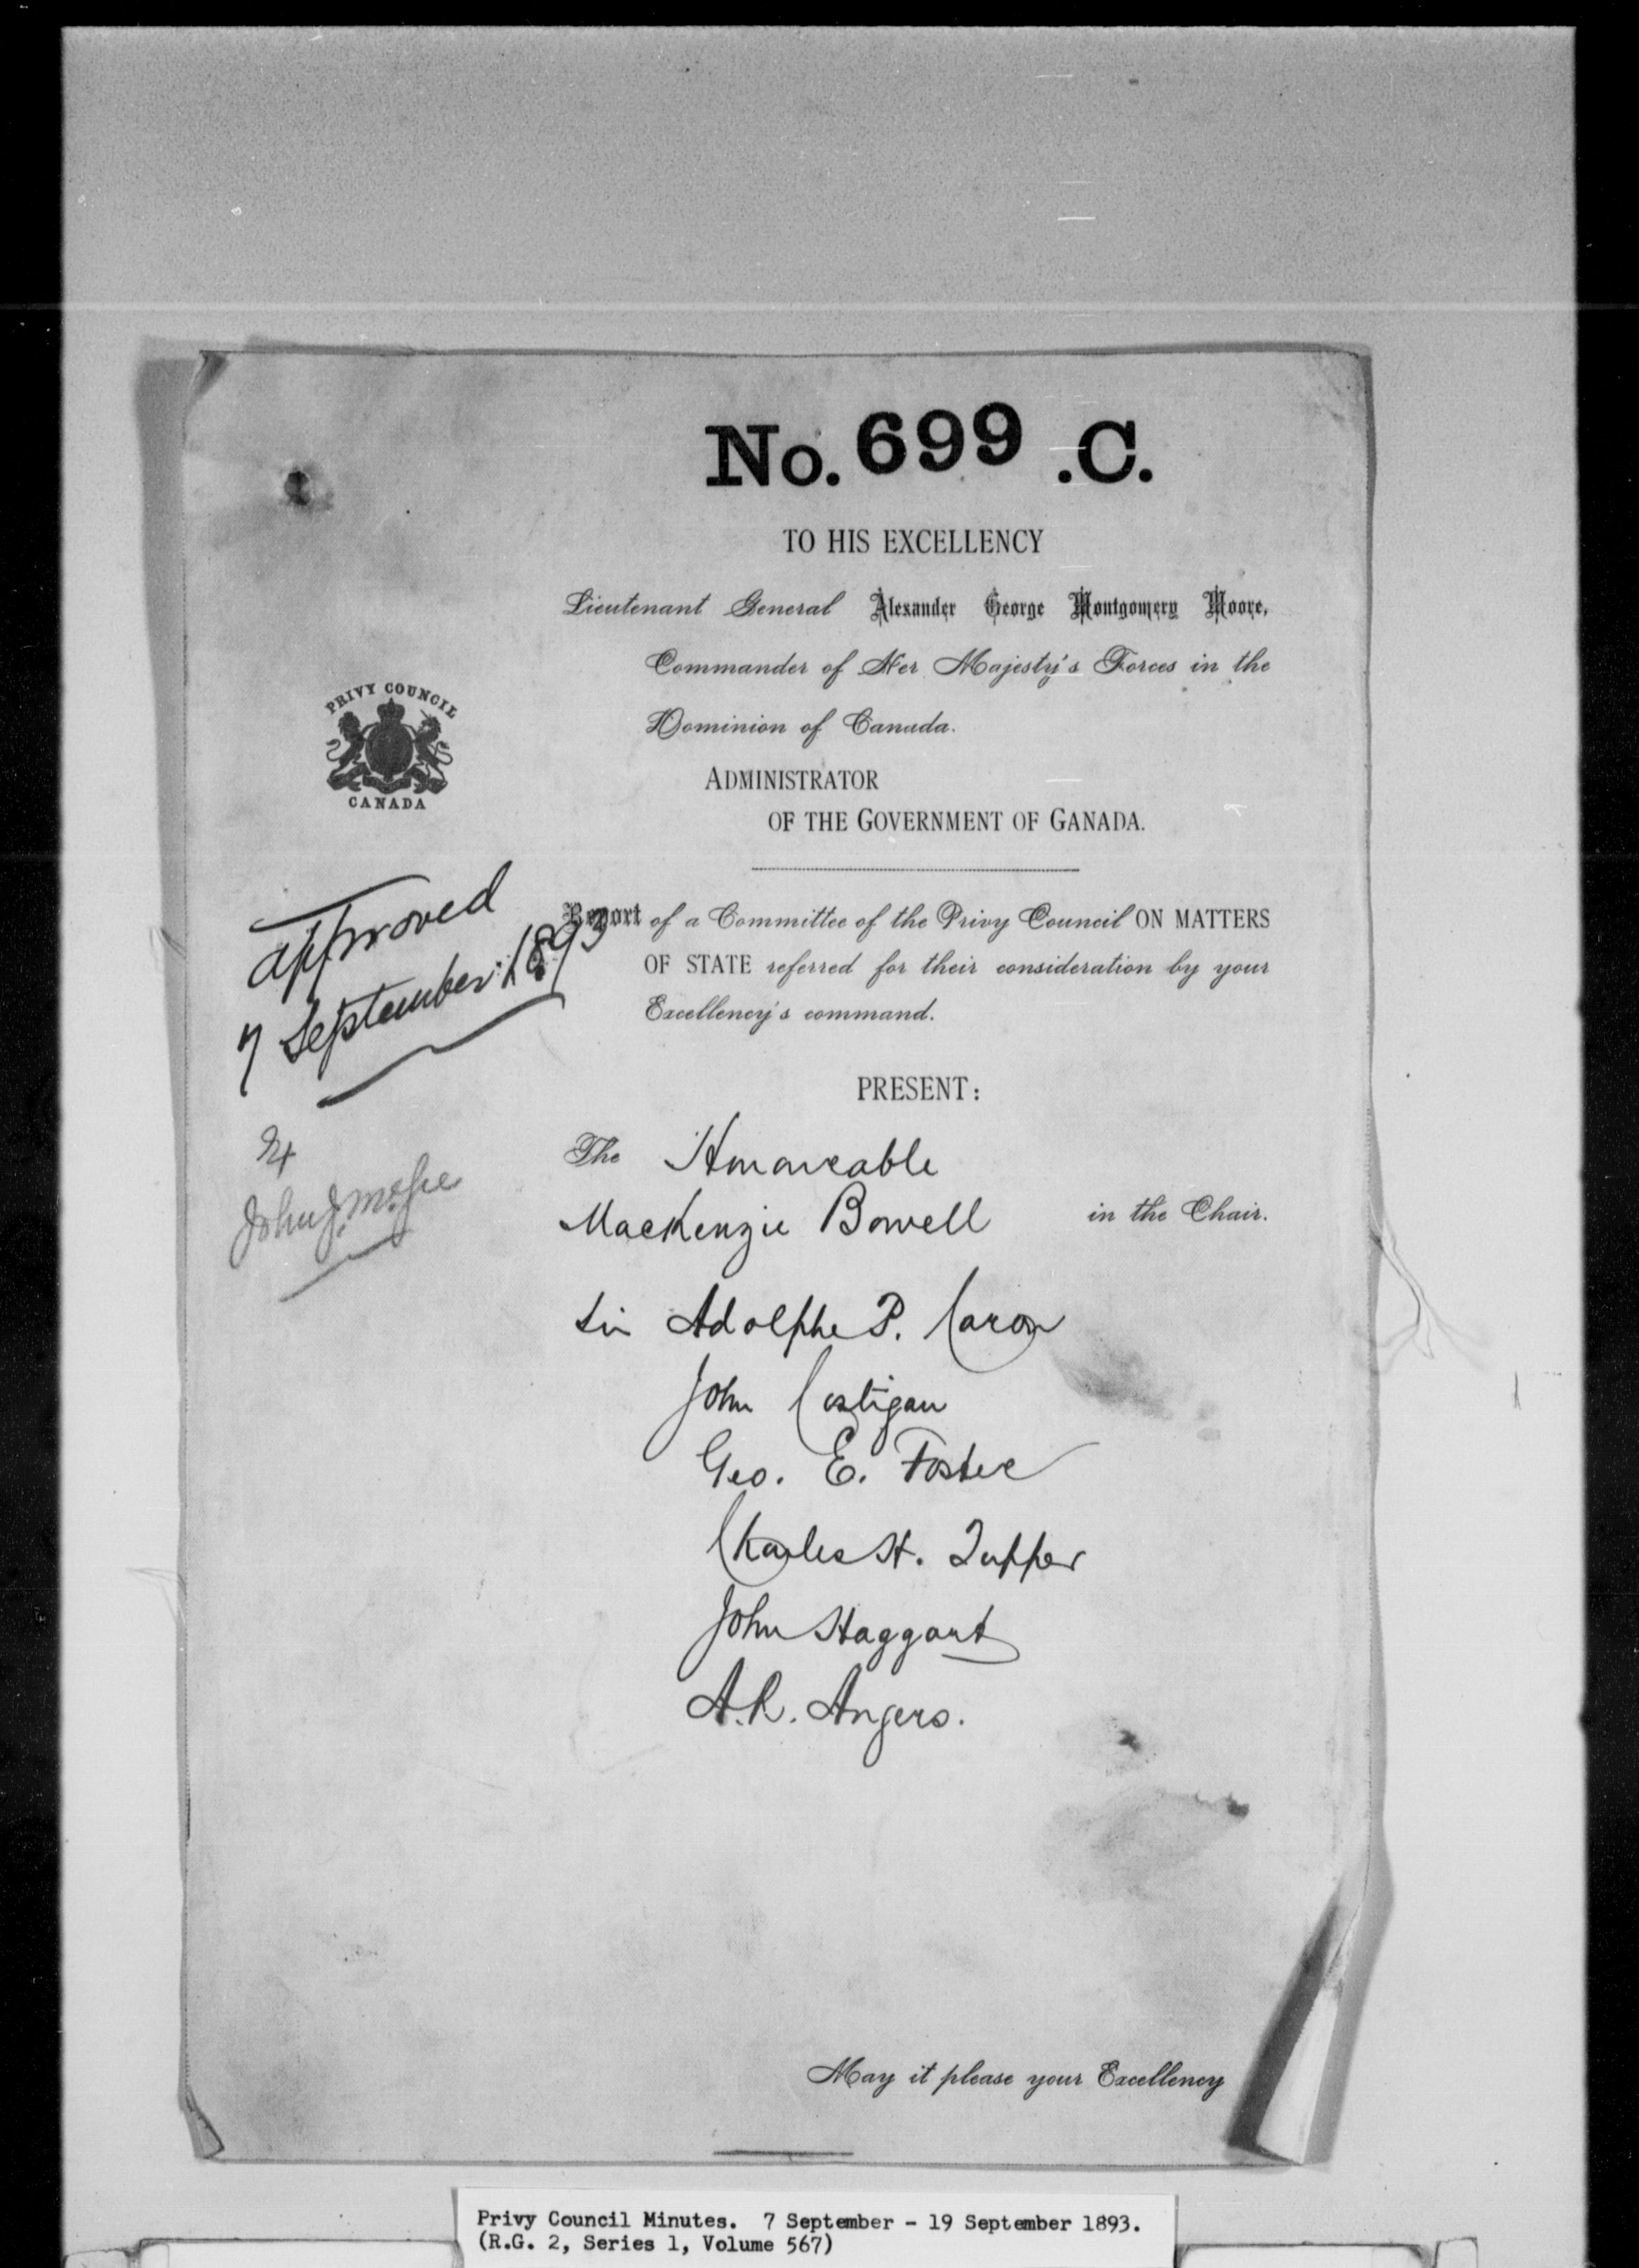 No. 699 .C.
TO HIS EXCELLENCY
Lieutenant General Alexander George Montgomery Moore,
Commander of Her Majesty's Forces in the
Dominion of Canada.
PRIVY COUNCIL
CANADA
ADMINISTRATOR
OF THE GOVERNMENT OF CANADA.
approved
7 September. 1893
Report of a Committee of the Privy Council ON MATTERS
OF STATE referred for their consideration by your
Excellency's command.
PRESENT:
John J. McGee
The Honourable
MacKenzie Bowell in the Chair.
Sir Adolphe P. Caron
John Costigan
Geo. E. Foster
Charles H. Tupper
John Haggart
A.R. Angers.
May it please your Excellency
Privy Council Minutes. 7 September - 19 September 1893.
(R.G. 2, Series 1, Volume 567)